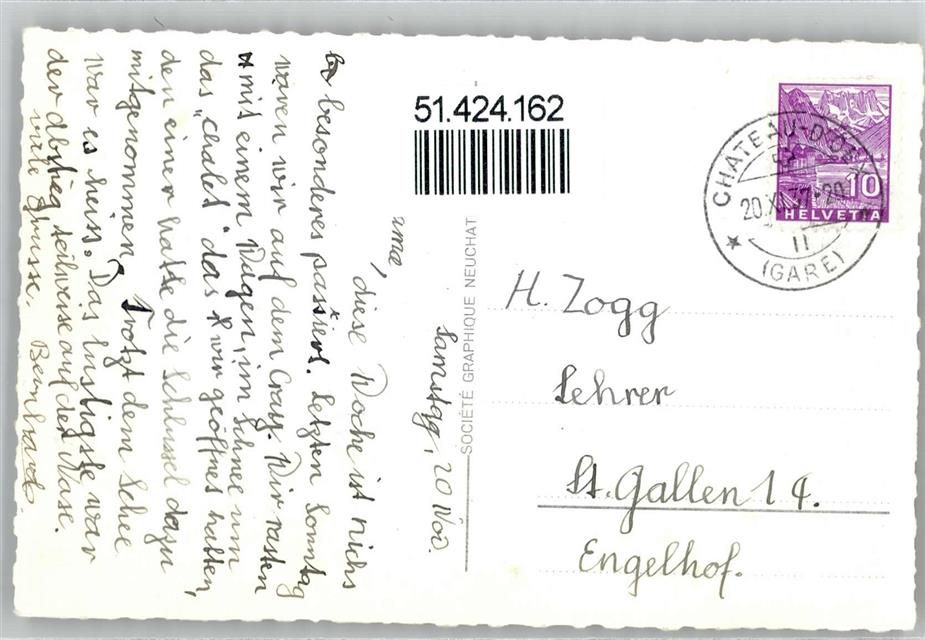 51.424.162
CHATEAU-D'ŒX
20.XI.37-20
II
(GARE)
10
HELVETIA
SOCIÉTÉ GRAPHIQUE NEUCHATEL
H. Zogg
Lehrer
St. Gallen 14.
Engelhof.
Samstag, 20 Nov.
diese Woche ist nichs
besonderes passiert. Letzten Sonntag
waren wir auf dem Cray. Wir rasten
mit einem Wagen, im Schnee um
das "chalet" das wir geöffnet hatten,
den einer hatte die Schlüssel dazu
mitgenommen. Trotz dem Schee
war es heiss. Das lustigste war
der abstieg teilweise auf der Nase.
viele Grüsse. Bernhard.